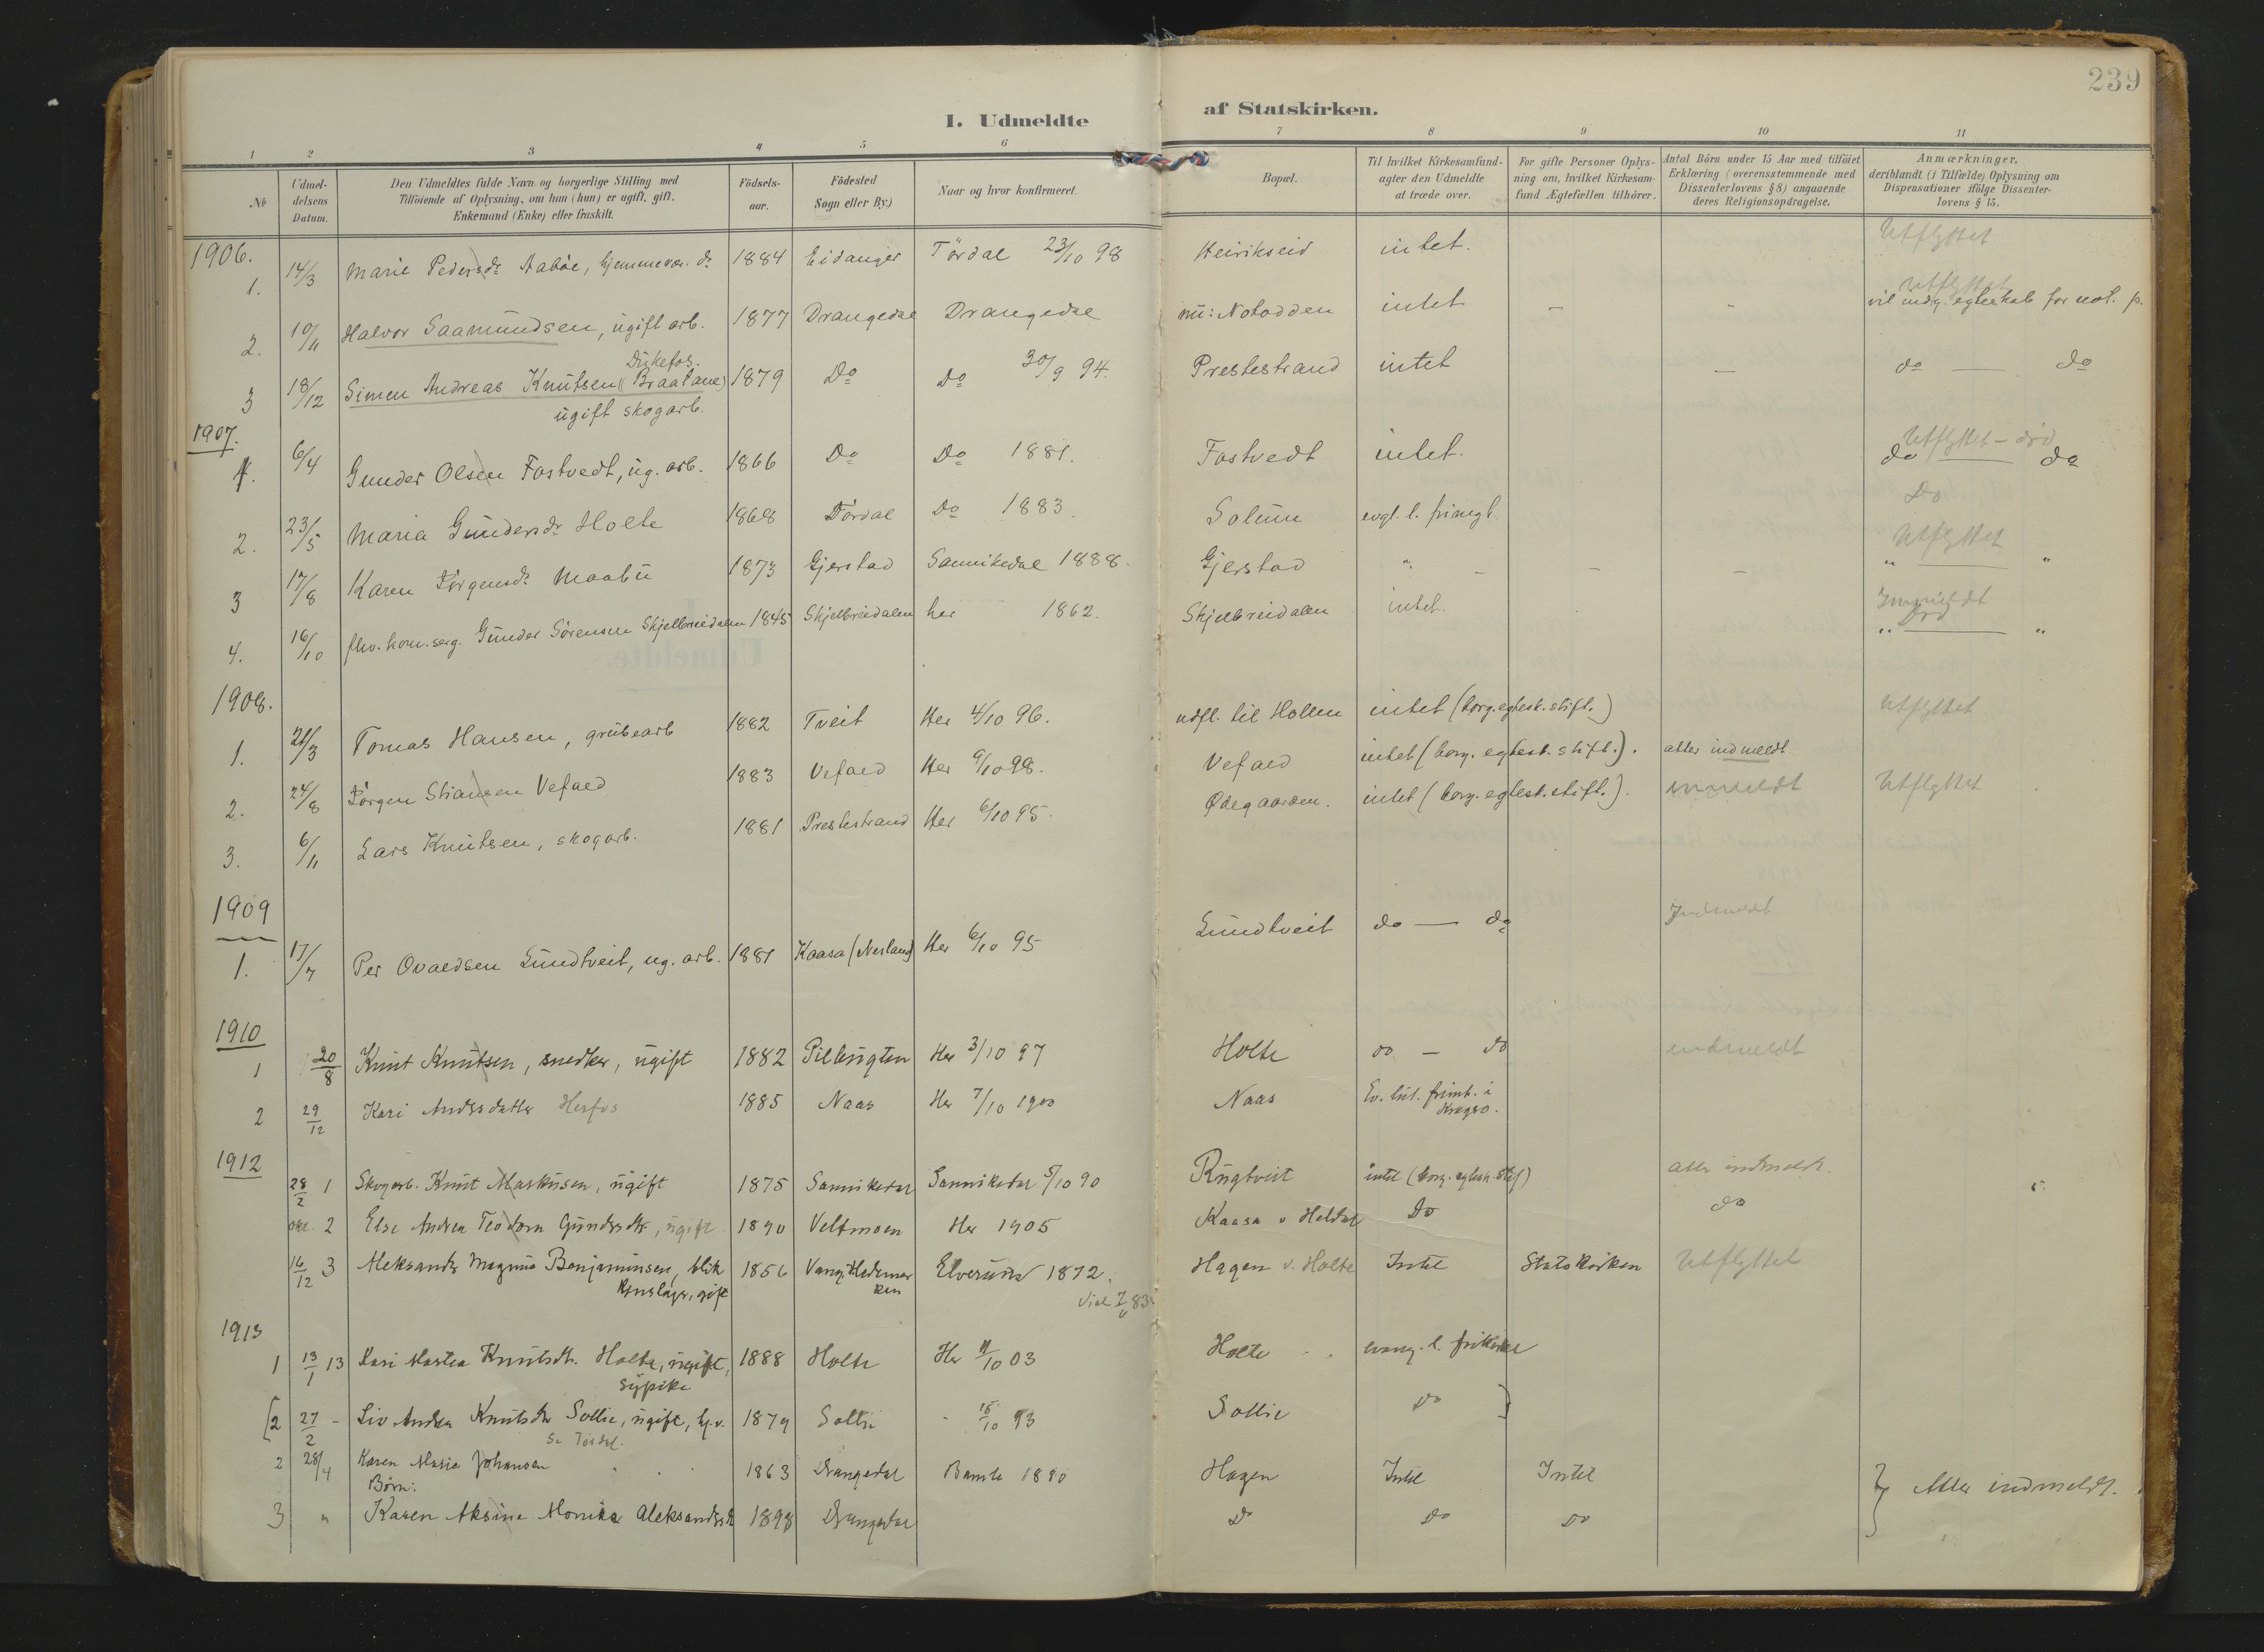 239
I. Udmeldte af Statskirken.
1 2 3 4 5 6 7 8 9 10 11
№
Udmel-
delsens
Datum.
Den Udmeldtes fulde Navn og borgerlige Stilling med
Tilföiende af Oplysning, om han (hun) er ugift, gift,
Enkemand (Enke) eller fraskilt.
Födsels-
aar.
Födested
Sogn eller By.)
Naar og hvor konfirmeret.
Bopæl.
Til hvilket Kirkesamfund-
agter den Udmeldte
at træde over.
For gifte Personer Oplys-
ning om, hvilket Kirkesam-
fund Ægtefællen tilhörer.
Antal Börn under 15 Aar med tilföiet
Erklæring (overensstemmende med
Dissenterlovens § 8) angaaende
deres Religionsopdragelse.
Anmærkninger,
deriblandt (i Tilfælde) Oplysning om
Dispensationer ifölge Dissenter-
lovens § 15.
1906.
1. 14/3 Marie Pedersdr Aabøe, hjemmevær. dr 1884 Eidanger Tördal 23/10 98 Heirikseid intet. Utflyttet
2. 10/11 Halvor Saamundsen, ugift arb. 1877 Drangedal Drangedal nu: Notodden intet — - Utflyttet
vil indg. egteskab for not. p.
3 18/12 Simen Andreas Knutsen (Braatane) 1879 Do Do 30/9 94. Prestestrand intet — do — do
Dukefos.
ugift skogarb.
1907.
1. 6/4 Gunder Olsen Fostvedt, ug. arb. 1866 Do Do 1881. Fostvedt intet. Utflyttet - död
do — do
2. 23/5 Maria Gundersdr Holte 1868 Tördal Do 1883. Solum evgl. l. frimgh. Do
3 17/8 Karen Jörgensdr Maabu 1873 Gjerstad Sannikedal 1888. Gjerstad " - - - Utflyttet
" — "
4. 16/10 fhv. kom. serg. Gunder Sörensen Skjelbreidalen 1845 Skjelbreidalen her 1862. Skjelbreidalen intet. Innmeldt
Död
" — "
1908.
1. 21/3 Tomas Hansen, grubearb 1882 Tveit Her 4/10 96. udfl. til Hollen intet (borg. egtesk. stift.) Utflyttet
2. 24/8 Jörgen Stiansen Vefald 1883 Vefald Her 9/10 98. Vefald intet (borg. egtesk. stift.). atter indmeldt
3. 6/11 Lars Knutsen, skogarb. 1881 Prestestrand Her 6/10 95. Ødegaarden. intet (borg. egtesk. stift.). innmeldt Utflyttet
1909
1. 17/7 Per Ovaldsen Lundtveit, ug. arb. 1881 Kaasa (Nesland) Her 6/10 95 Lundtveit do — do Indmeldt
1910
1 20/8 Knut Knutsen, snedker, ugift 1882 Her 3/10 97 Holte do - do indmeldt
2 29/12 Kari Andersdatter Herfos 1885 Naas Her 7/10 1900 Naas Ev. lut. frimh. i
Kragerø.
1912
28/2 1 Skogarb. Knut Markusen, ugift 1875 Sannikedal Sannikedal 5/10 90 Rugtveit intet (borg. egtesk. stift) atter indmeldt.
2 Else Andrea Teodora Gundersdtr, ugift 1890 Veltmoen Her 1905 Kaasa v Heldal Do do
16/12 3 Aleksander Magnus Benjaminsen, blik 1856 Vang, Hedemar Elverum 1872. Hagen v. Holte Intet Statskirken Utflyttet
kenslager, gift ken
1913
1 13/1 13 Kari Martea Knutsdtr. Holte, ugift, 1888 Holte Her 11/10 03 Holte evang. l. frikirke
sypike
[2 27/2 - Liv Andrea Knutsdtr Sollie, ugift, hj.v. 1879 Sollie - 15/10 93 Sollie do ]
Se Tördal.
2 28/4 Karen Marie Johansen 1863 Drangedal Bamle 1880 Hagen Intet Intet } Atter indmeldt.
Börn:
3 " Karen Aksine Monika Aleksandersdt 1898 Drangedal Do do do